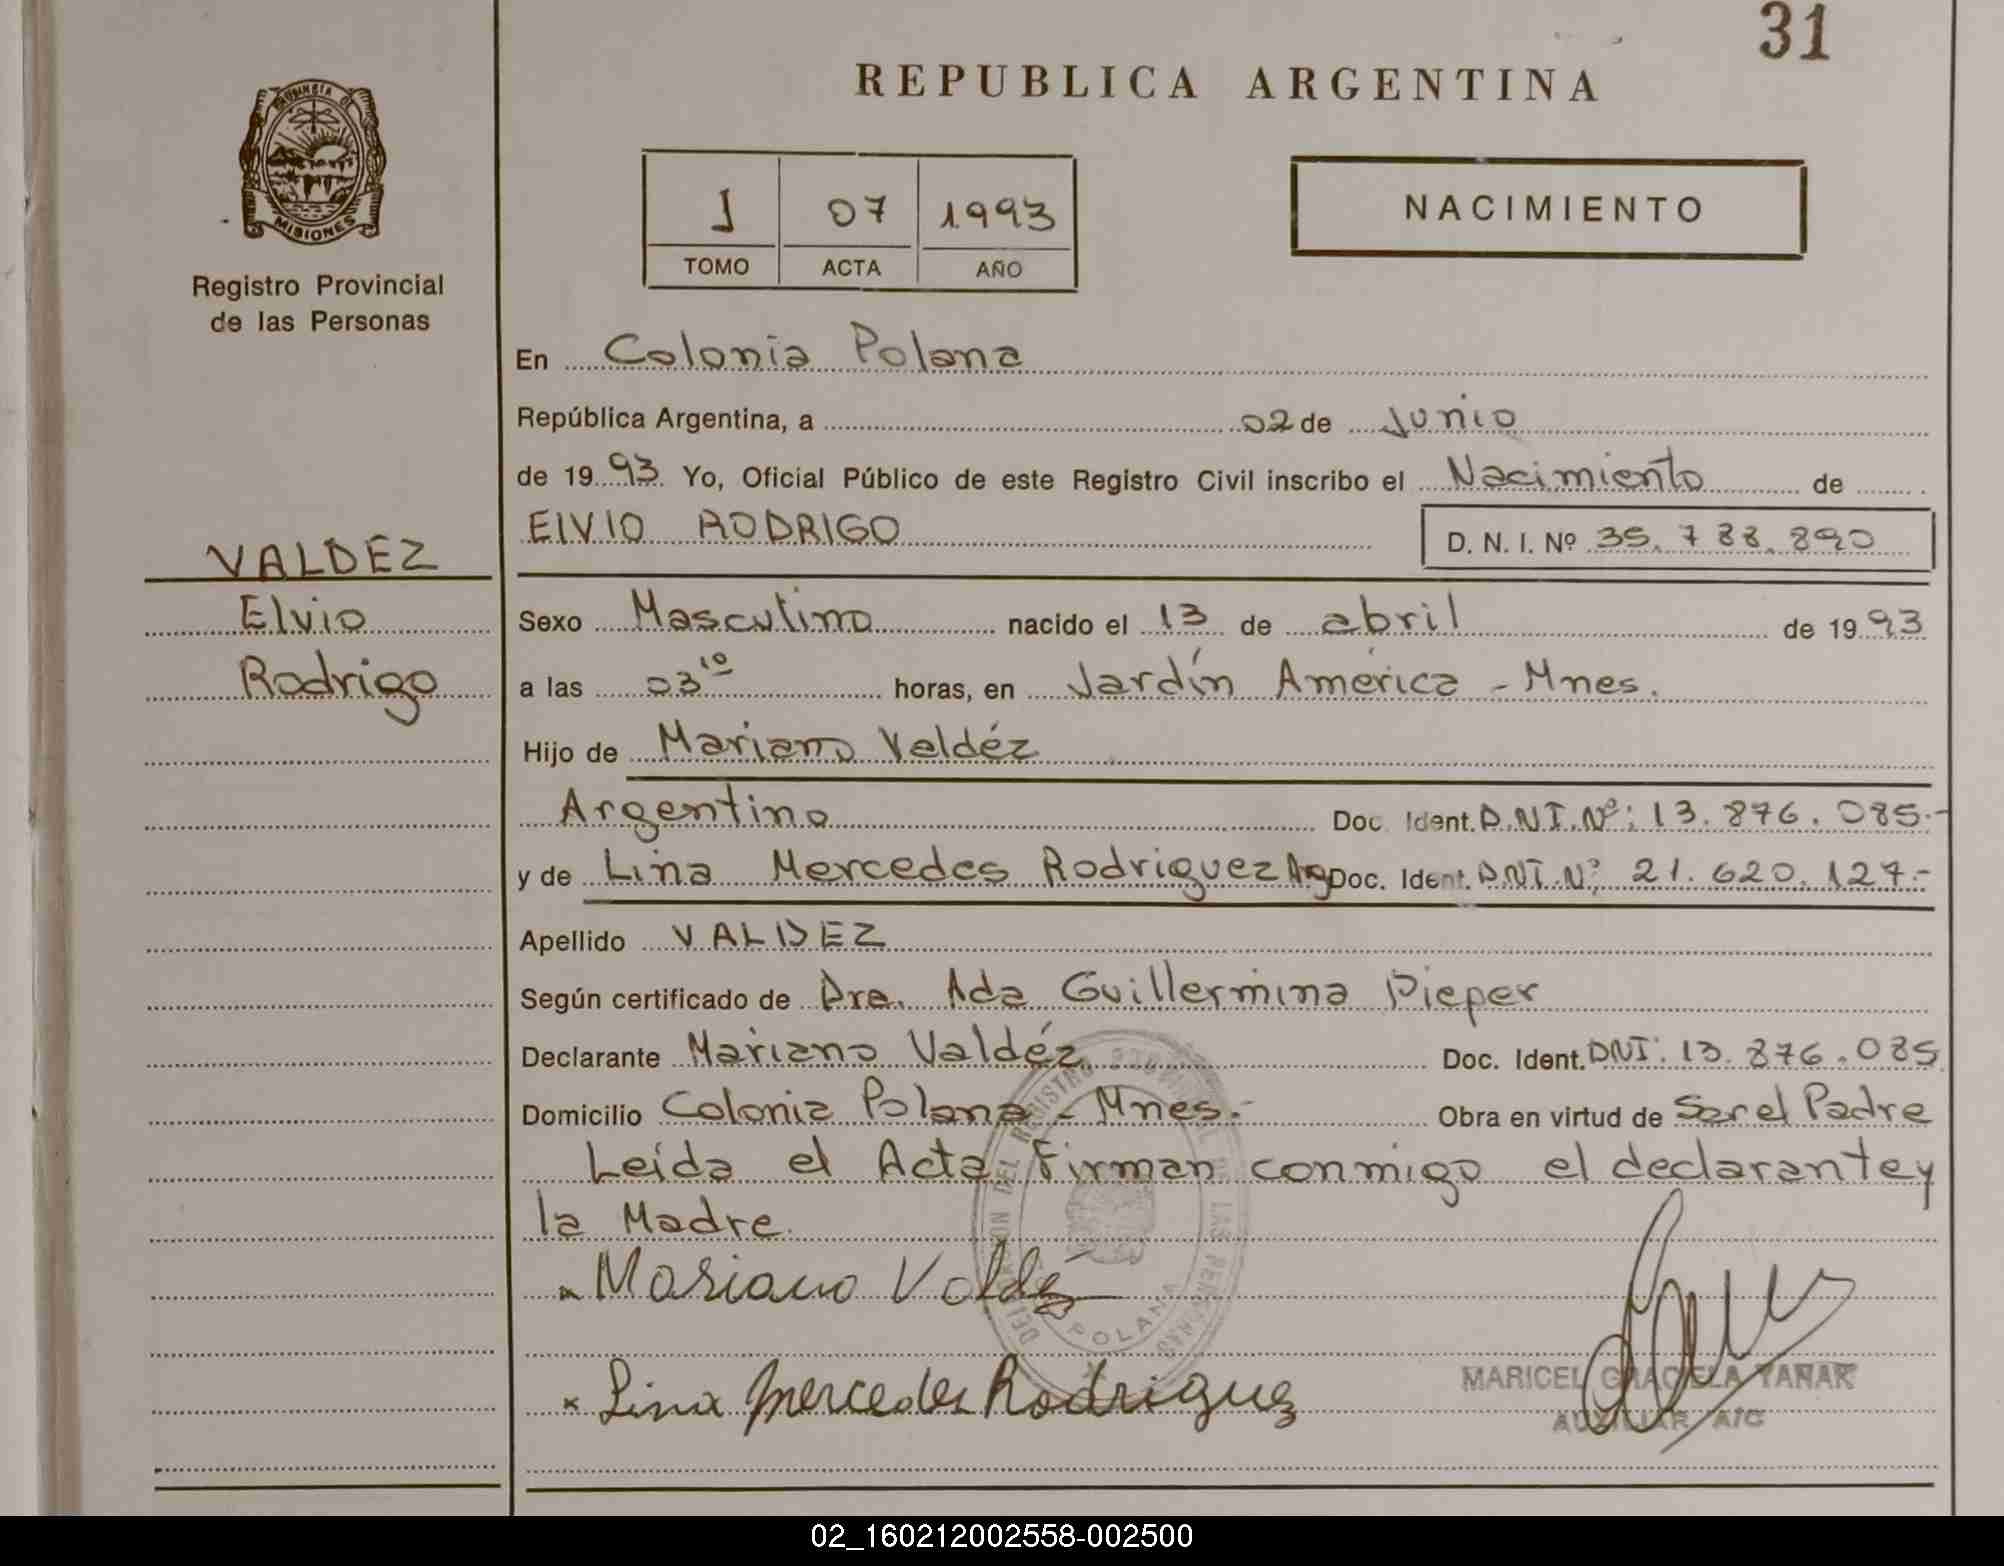 31
REPUBLICA ARGENTINA
PROVINCIA DE
MISIONES
Registro Provincial
de las Personas
J 07 1993
TOMO ACTA AÑO
NACIMIENTO
En Colonia Polana
República Argentina, a 02 de Junio
de 1993 Yo, Oficial Público de este Registro Civil inscribo el Nacimiento de
ElVIO RODRIGO D. N. I. Nº 35.788.890
VALDEZ
Elvio
Rodrigo
Sexo Masculino nacido el 13 de abril de 1993
a las 03 10 horas, en Jardín América - Mnes.
Hijo de Mariano Valdéz
Argentino Doc. Ident. D.N.I.Nº: 13.876.085.-
y de Lina Mercedes Rodriguez Arg Doc. Ident. DNI.Nº: 21.620.127.-
Apellido VALDEZ
Según certificado de Dra. Ada Guillermina Pieper
Declarante Mariano Valdéz Doc. Ident. DNI: 13.876.085
Domicilio Colonia Polana - Mnes.- Obra en virtud de Ser el Padre
Leída el Acta Firman conmigo el declarante y
la Madre.
x Mariano Valdéz
x Lina Mercedes Rodriguez
DELEGACION DEL REGISTRO PROVINCIAL DE LAS PERSONAS
POLANA
MARICEL GRACIELA YAÑAK
AUXILIAR A/C
02_160212002558-002500